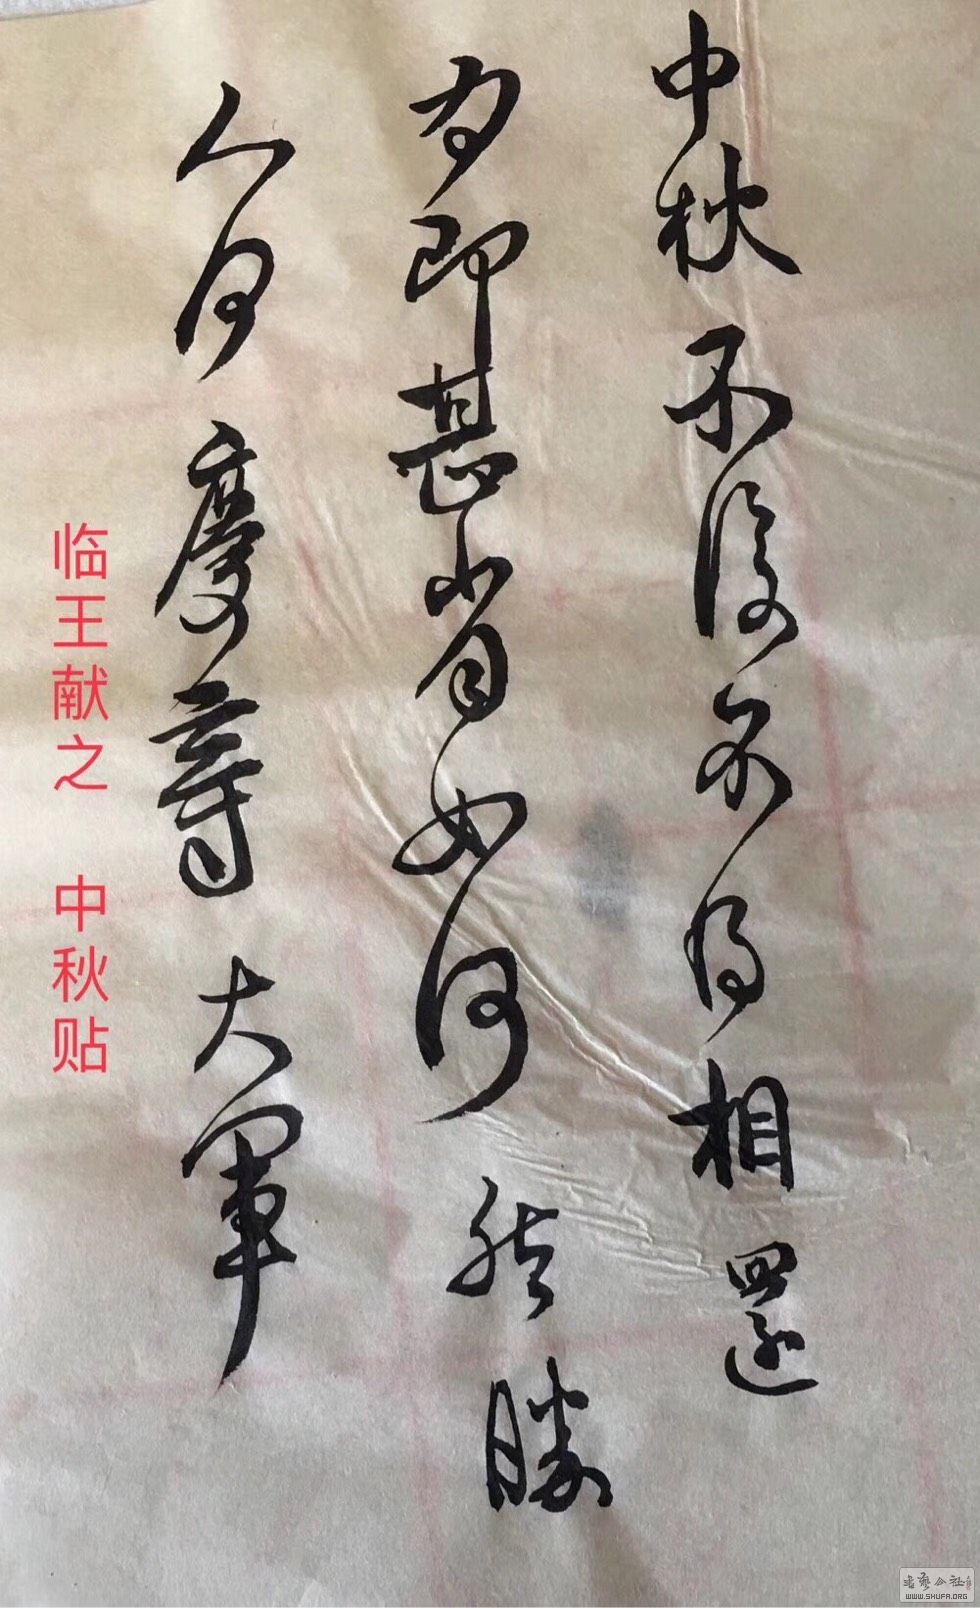 中秋不復不得相還
為即甚省如何然勝
人何慶等大軍
临王献之 中秋贴
书艺公社
WWW.SHUFA.ORG